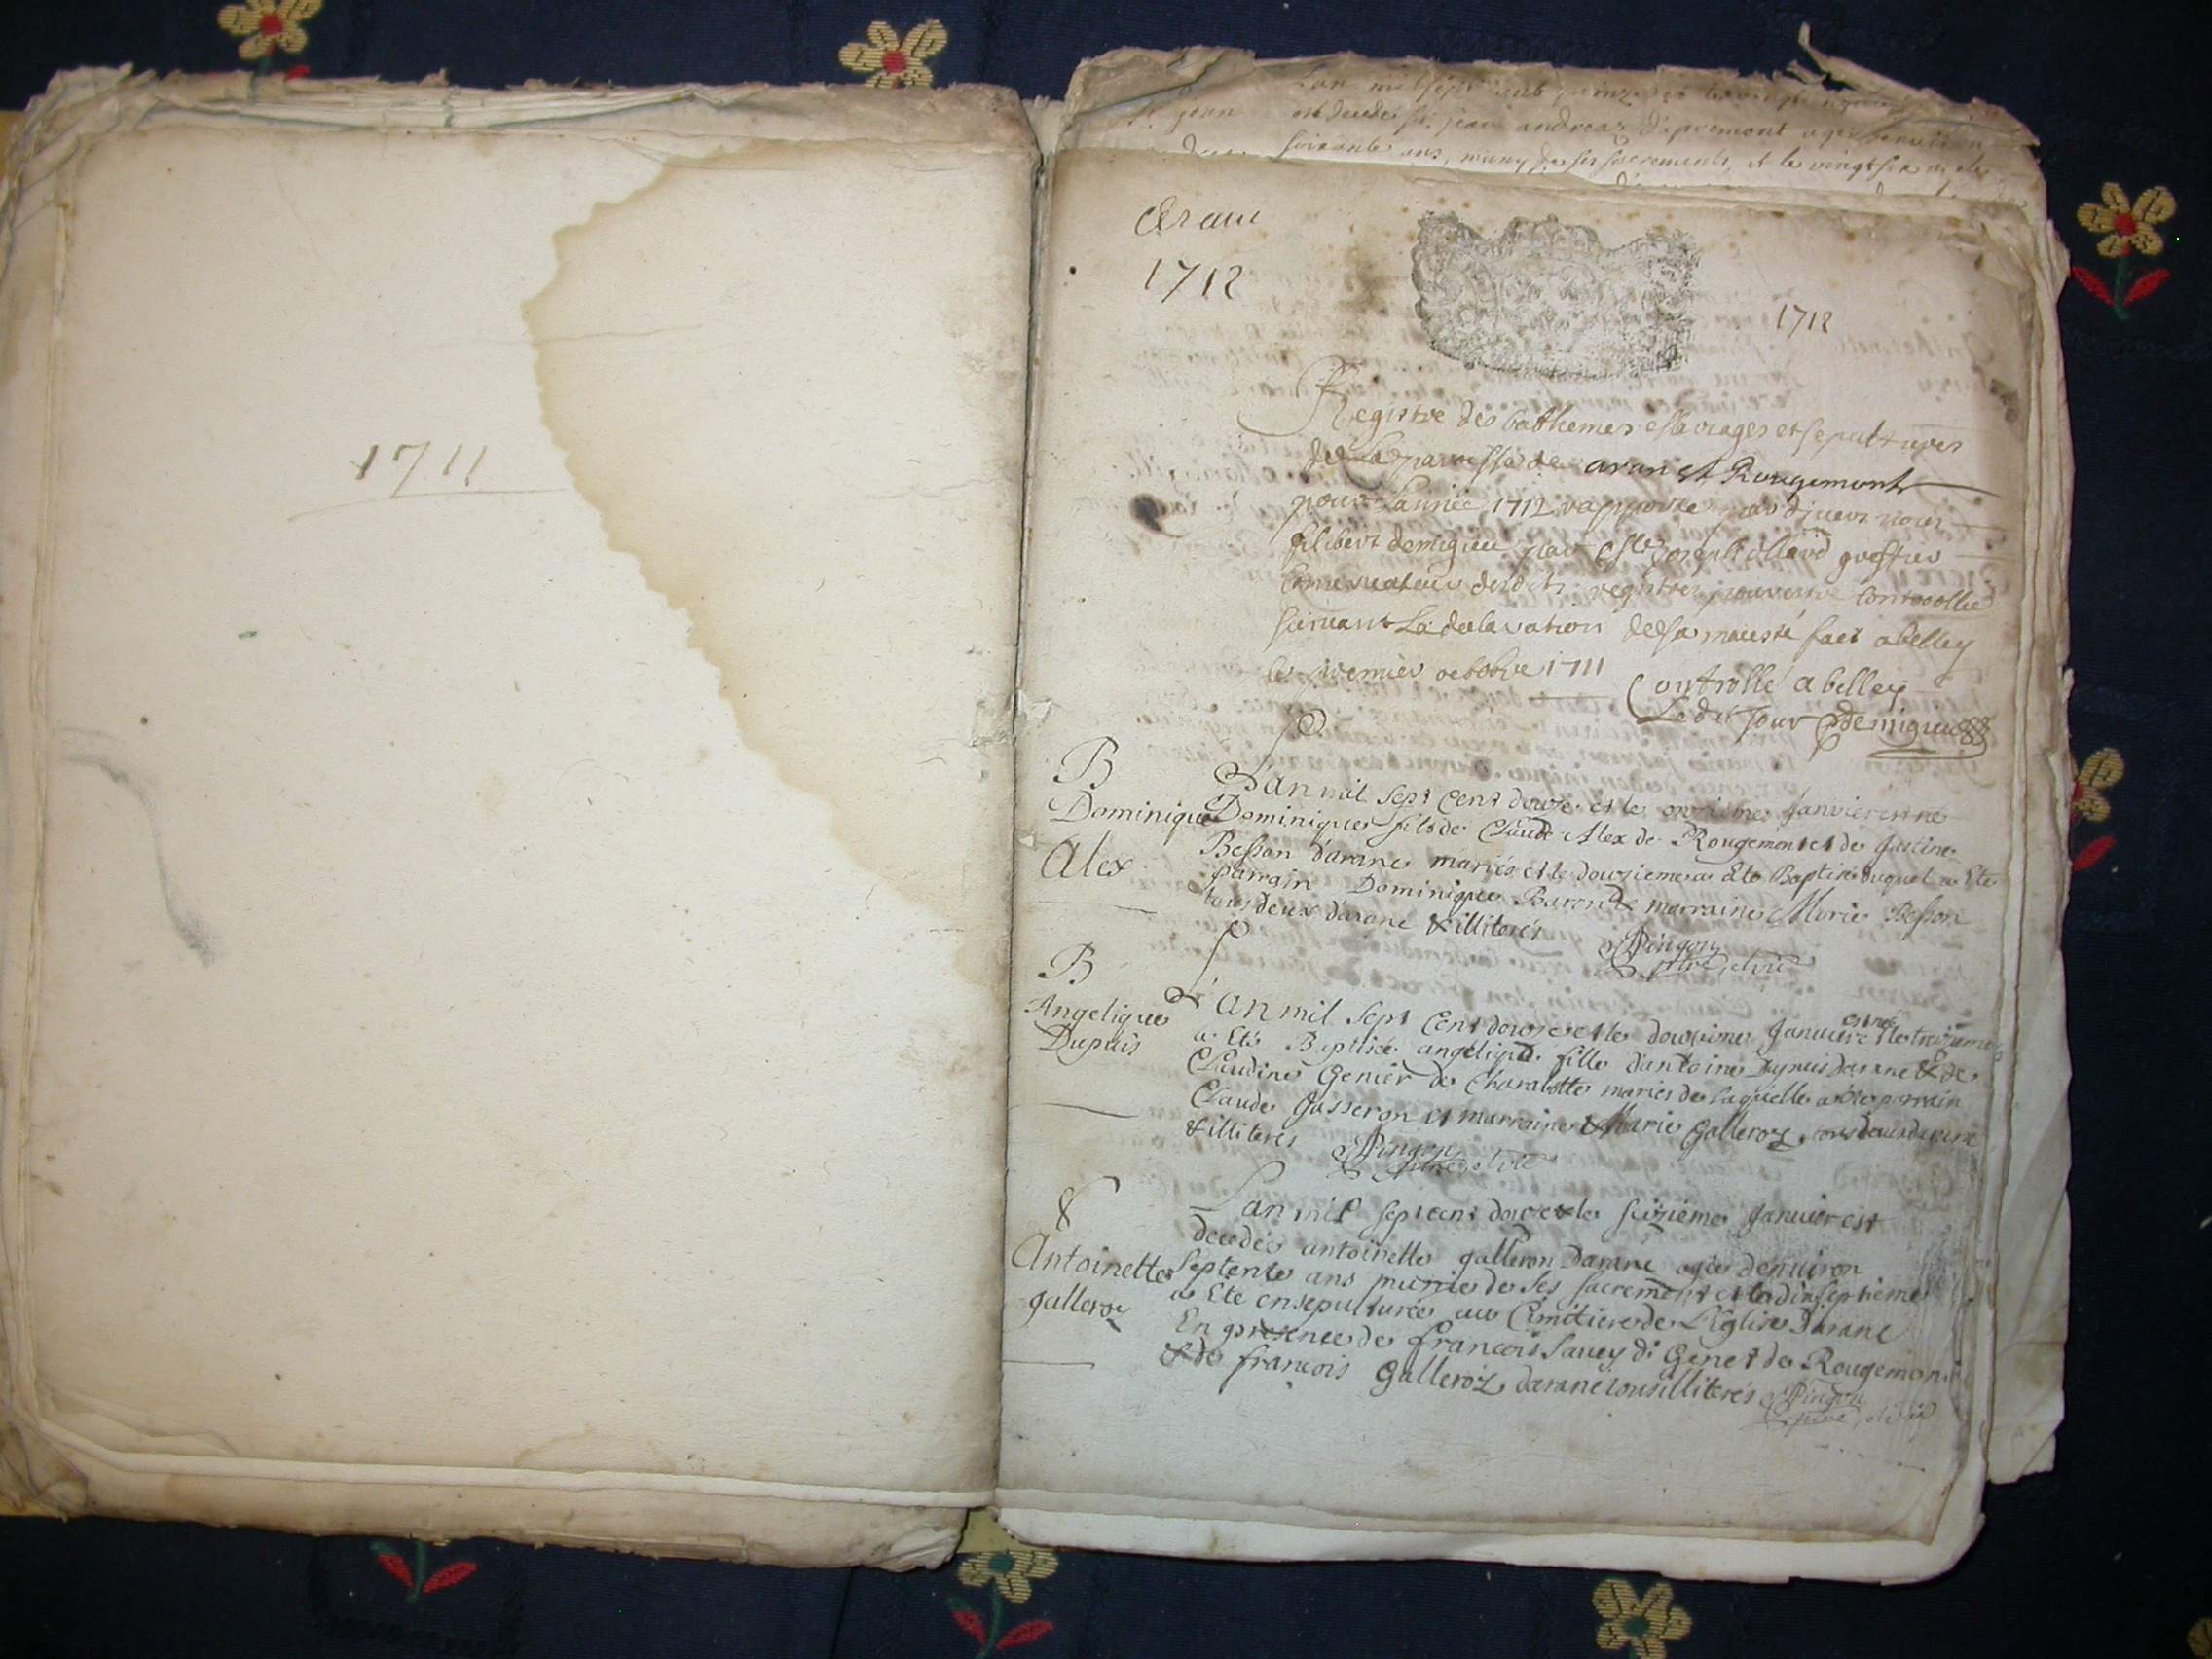 1711
L'an mil sept cent
jean
est decede Sr. jean andreaz d'apremont
soixante ans, muny de ses sacrements, et le vingt six a ete
Aranc
1712
1712
Registre des bathemes et sepultures
de la paroisse de aran et Rougemont
pour l'année 1712
filibert demigieu par joseph greffier
Conservateur desdits registres controollé
suivant La declaration de sa maiesté fait a belley
le premier octobre 1711
Controllé a belley
Ledit jour demigieu
B
Dominique
Alex
L'an mil sept cent douze et le onzieme Janvier est né
Dominique fils de Claude Alex de Rougemont et de Justine
Besson d'aranc mariés et le douzieme a Eté Baptisé duquel a Eté
parrain Dominique Baron & marraine Marie Besson
tous deux d'aranc & illiterés
Pingon
ptre, et vic
B
Angelique
Dupuis
L'an mil sept cent douze et le douzieme Janvier est née et le treizieme
a Eté Baptisée angelique fille d'antoine Dupuis d'aranc & de
Claudine Genier de Charabotte mariés de laquelle a eté parrain
Claude Jasseron et marraine Marie Galleroz tous deux d'aranc
& illiterés
Pingon
ptre, et vic
&
Antoinette
galleroz
L'an mil sept cent douze & le seizieme Janvier est
decedée antoinette galleron d'aranc agée d'environ
septente ans munie de ses sacrement et le dix septieme
a Eté ensepulturée au Cimitiere de L'Eglise d'aranc
En presence de francois Savey di Genet de Rougemont
& de francois Galleroz d'aranc tous illiterés
Pingon
ptre, et vic